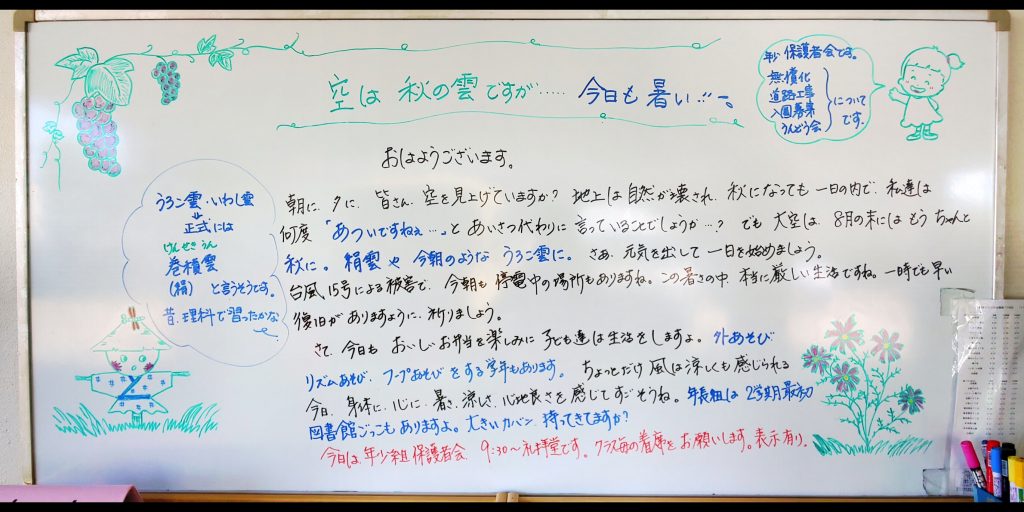 空は 秋の雲ですが…… 今日も 暑い…。
年少 保護者会です。
無償化
道路工事
入園募集
うんどう会
について
です。
おはようございます。
うろこ雲・いわし雲
正式には
けんせきうん
巻積雲
(絹) と言うそうです。
昔、理科で習ったかな
朝に、夕に、皆さん、空を見上げていますか? 地上は自然が壊され、秋になっても一日の内で、私達は
何度「あついですねぇ…」とあいさつ代わりに言っていることでしょうか…? でも大空は、8月の末にはもうちゃんと
秋に。絹雲や今朝のようなうろこ雲に。さあ、元気を出して一日を始めましょう。
台風15号による被害で、今朝も停電中の場所もありますね。この暑さの中、本当に厳しい生活ですね。一時でも早い
復旧がありますように、祈りましょう。
さて、今日もおいしいお弁当を楽しみに子ども達は生活をしますよ。外あそび
リズムあそび、フープあそびをする学年もあります。ちょっとだけ風は涼しくも感じられる
今日、身体に、心に、暑さ、涼しさ、心地良さを感じてすごそうね。年長組は2学期最初の
図書館ごっこもありますよ。大きいカバン持ってきてますか?
今日は年少組保護者会、9:30〜礼拝堂です。クラス毎の着席をお願いします。表示有り。